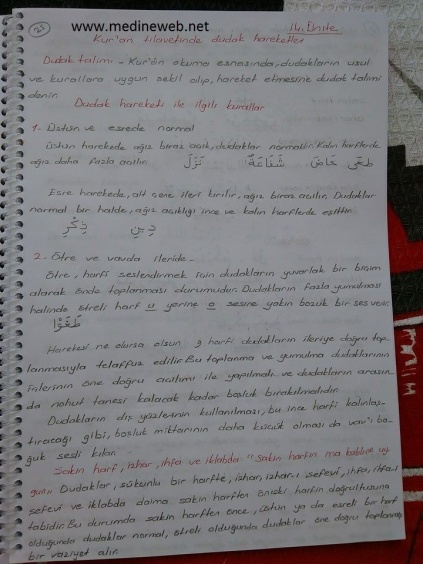 www.medineweb.net
23
14. Ünite
Kur'an tilavetinde dudak hareketleri
Dudak talimi - Kur'an okuma esnasında, dudakların usul
ve kurallara uygun şekil alıp, hareket etmesine dudak talimi
denir.
Dudak hareketi ile ilgili kurallar
1- Üstün ve esrede normal
Üstün harekede ağız biraz açık, dudaklar normaldir. Kalın harflerde
ağız daha fazla açılır. طَغَى خَاضَ شَفَاعَةً نَزَلَ
Esre harekede, alt çene ileri kırılır, ağız biraz açılır. Dudaklar
normal bir halde, ağız açıklığı ince ve kalın harflerde eşittir.
دِينِ ذِكْرِ
2- Ötre ve vavda ileride -
Ötre, harfi seslendirmek için dudakların yuvarlak bir biçim
alarak önde toplanması durumudur. Dudakların fazla yumulması
halinde ötreli harf u yerine o sesine yakın bozuk bir ses verir.
طَغَوْا
Harekesi ne olursa olsun و harfi dudakların ileriye doğru top-
lanmasıyla telaffuz edilir. Bu toplanma ve yumulma dudakların
içlerinin öne doğru açılımı ile yapılmalı ve dudakların arasın-
da nohut tanesi kalacak kadar boşluk bırakılmalıdır.
Dudakların dış yüzlerinin kullanılması, bu ince harfi kalınlaş-
tıracağı gibi, boşluk miktarının daha küçük olması da vav'ı bo-
ğuk sesli kılar.
Sakin harf, izhar, ihfa ve iklabda "Sakin harfin ma kabline uy-
gun" Dudaklar, sükunlu bir harfte, izhar, izhar-ı şefevi, ihfa, ihfa-i
şefevi ve iklabda daima sakin harften önceki harfin doğrultusuna
tabidir. Bu durumda sakin harften önce, üstün ya da esreli bir harf
olduğunda dudaklar normal, ötreli olduğunda dudaklar öne doğru toplanmış
bir vaziyet alır.